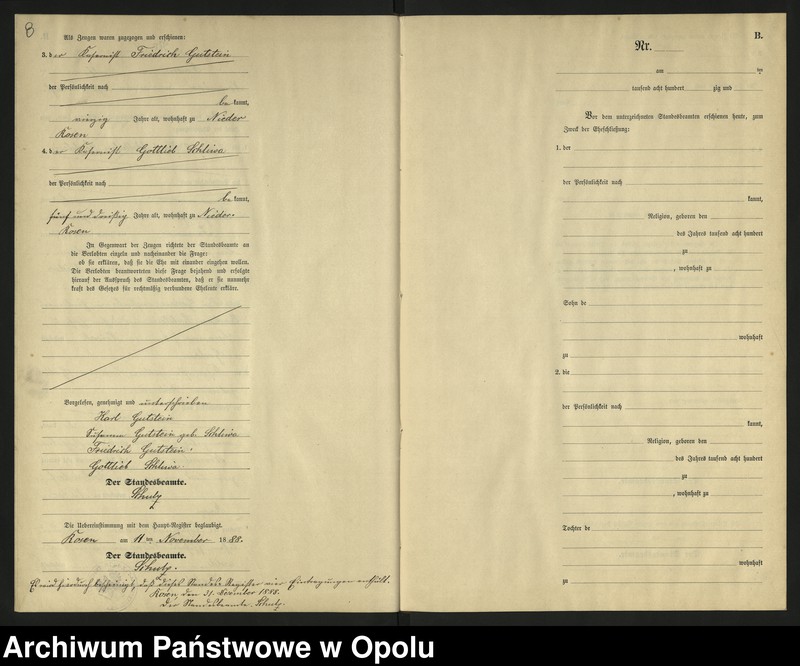 8
Als Zeugen waren zugezogen und erschienen:
3. der Friedrich Gutstein
der Persönlichkeit nach
be kannt,
vierzig Jahre alt, wohnhaft zu Nieder
Rosen
4. der Gottlieb Schliwa
der Persönlichkeit nach
be kannt,
fünf und dreißig Jahre alt, wohnhaft zu Nieder-
Rosen
In Gegenwart der Zeugen richtete der Standesbeamte an
die Verlobten einzeln und nacheinander die Frage:
ob sie erklären, daß sie die Ehe mit einander eingehen wollen.
Die Verlobten beantworteten diese Frage bejahend und erfolgte
hierauf der Ausspruch des Standesbeamten, daß er sie nunmehr
kraft des Gesetzes für rechtmäßig verbundene Eheleute erkläre.
Vorgelesen, genehmigt und unterschrieben
Karl Gutstein
Susanna Gutstein geb. Schliwa
Friedrich Gutstein.
Gottlieb Schliwa.
Der Standesbeamte.
Schulz
Die Uebereinstimmung mit dem Haupt-Register beglaubigt.
Rosen am 11ten November 1888.
Der Standesbeamte.
Schulz.
Es wird hierdurch bescheinigt, daß dieses Standes-Register vier Eintragungen enthält.
Rosen, den 31. 1888.
Der Standesbeamte. Schulz.
B.
Nr.
am te
tausend acht hundert zig und
Vor dem unterzeichneten Standesbeamten erschienen heute, zum
Zweck der Eheschließung:
1. der
der Persönlichkeit nach
kannt,
Religion, geboren den
des Jahres tausend acht hundert
zu
, wohnhaft zu
Sohn de
wohnhaft
zu
2. die
der Persönlichkeit nach
kannt,
Religion, geboren den
des Jahres tausend acht hundert
zu
, wohnhaft zu
Tochter de
wohnhaft
zu
Archiwum Państwowe w Opolu